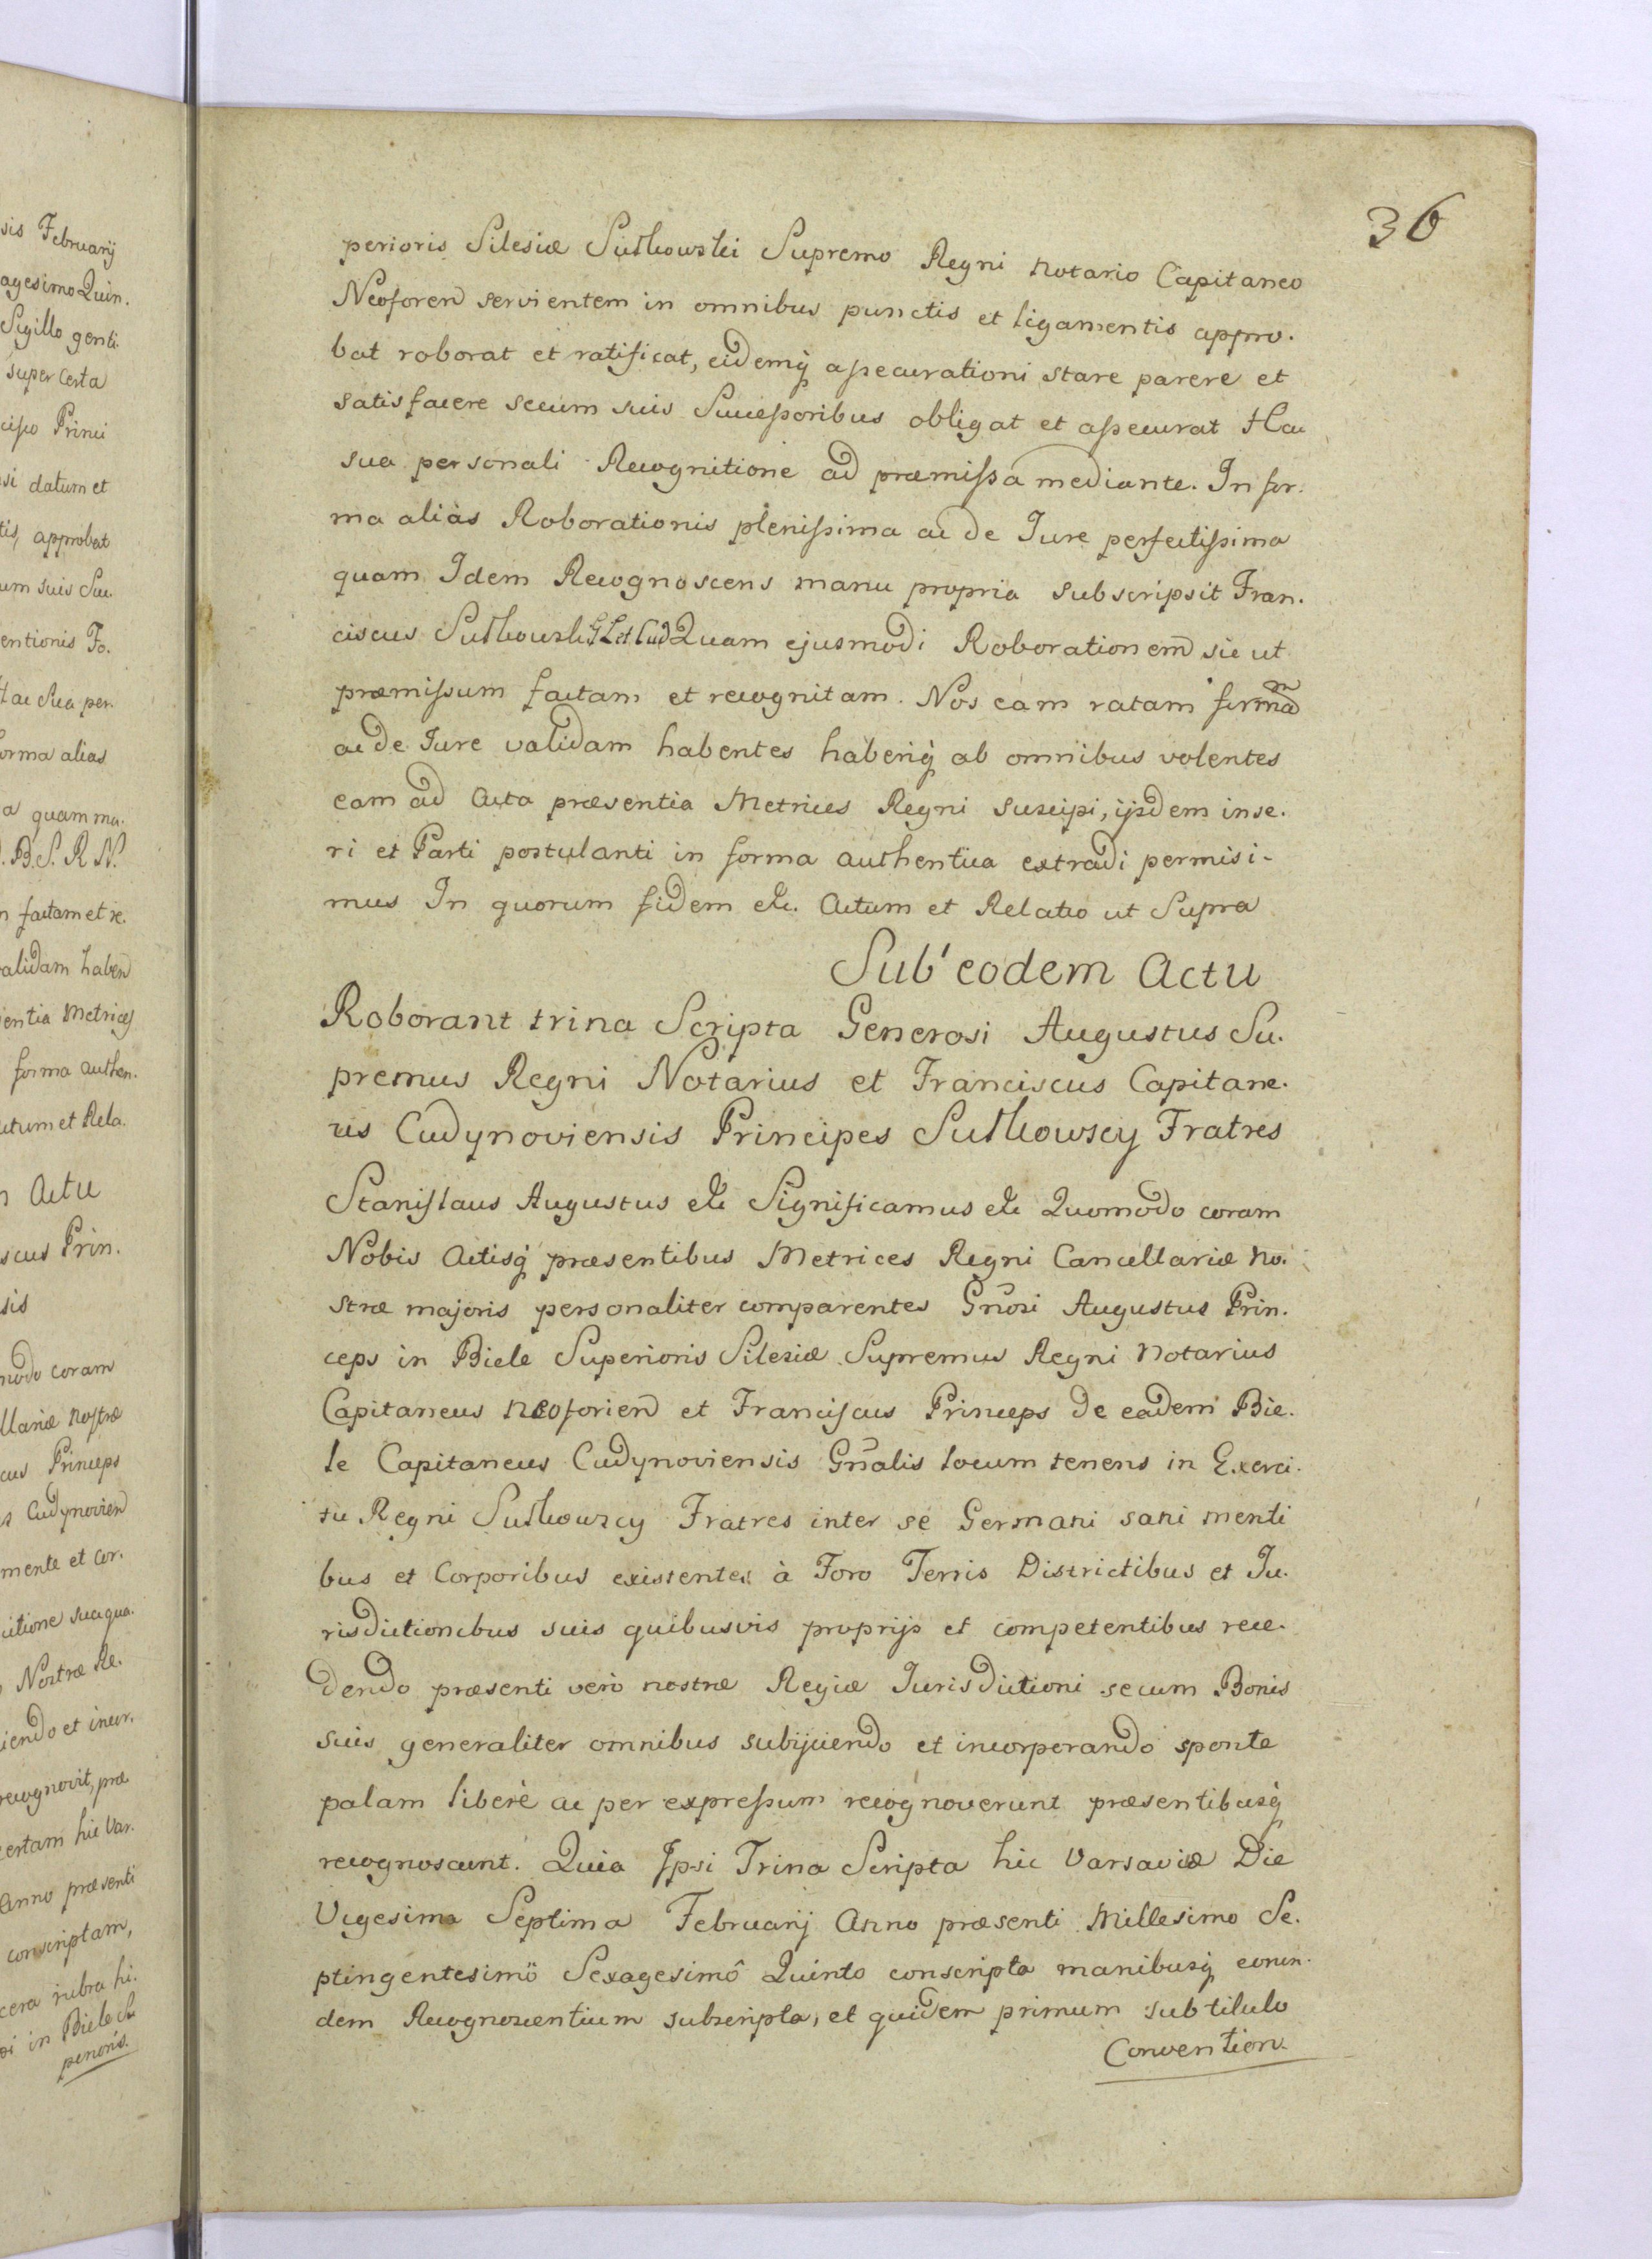 sis Februarij
agesimo Quin.
Sigillo genti.
super Certa
cipio Princi
si datum et
tis, approbat
um suis Suc.
entionis Fo.
Hac Sua per.
orma alias
a quam ma.
B. S. R N.
n factam et re.
validam haben
entia Metrices
forma authen.
ctum et Rela.
n Actu
scus Prin.
sis
modo coram
llariæ nostræ
cus Princeps
s Cudynovien
mente et cor.
ictione sua qua.
Nostræ Re.
iendo et incor.
recognovit, præ
certam hic Var.
Anno præsenti
conscriptam,
cera rubra hi.
in Biele Su
perioris.
36
perioris Silesiæ Sułkowski Supremo Regni Notario Capitaneo
Neoforen servientem in omnibus punctis et ligamentis appro.
bat roborat et ratificat, eidemq́ assecurationi stare parere et
satisfacere secum suis Successoribus obligat et assecurat Hac
sua personali Recognitione ad præmissa mediante. In for.
ma aliàs Roborationis plenissima ac de Iure perfectissima
quam Idem Recognoscens manu propria subscripsit Fran.
ciscus Sułkowski G L et Cud Quam ejusmodi Roborationem sic ut
præmissum factam et recognitam. Nos eam ratam firmam
ac de Iure validam habentes haberiq́ ab omnibus volentes
eam ad Acta præsentia Metrices Regni suscipi, ijsdem inse.
ri et Parti postulanti in forma authentica extradi permisi-
mus In quorum fidem etc. Actum et Relatio ut Supra
Sub eodem Actu
Roborant trina Scripta Generosi Augustus Su.
premus Regni Notarius et Franciscus Capitane.
us Cudynoviensis Principes Sułkowscy Fratres
Stanislaus Augustus etc Significamus etc Quomodo coram
Nobis Actisq́ præsentibus Metrices Regni Cancellariæ no.
stræ majoris personaliter comparentes Gñosi Augustus Prin.
ceps in Biele Superioris Silesiæ Supremus Regni Notarius
Capitaneus Neoforien et Franciscus Princeps de eadem Bie.
le Capitaneus Cudynoviensis Gñalis locum tenens in Exerci.
tu Regni Sułkowscy Fratres inter se Germani sani menti
bus et Corporibus existentes à Foro Terris Districtibus et Ju.
risdictionibus suis quibusvis proprijs et competentibus rece.
dendo præsenti verò nostræ Regiæ Iurisdictioni secum Bonis
suis generaliter omnibus subijciendo et incorporando sponte
palam liberè ac per expressum recognoverunt præsentibusq́
recognoscunt. Quia Ipsi Trina Scripta hic Varsaviæ Die
Vigesima Septima Februarij Anno præsenti Millesimo Se.
ptingentesimô Sexagesimô Quinto conscripta manibusq́ eorun.
dem Recognoscentium subscripta, et quidem primum sub titulo
Convention.